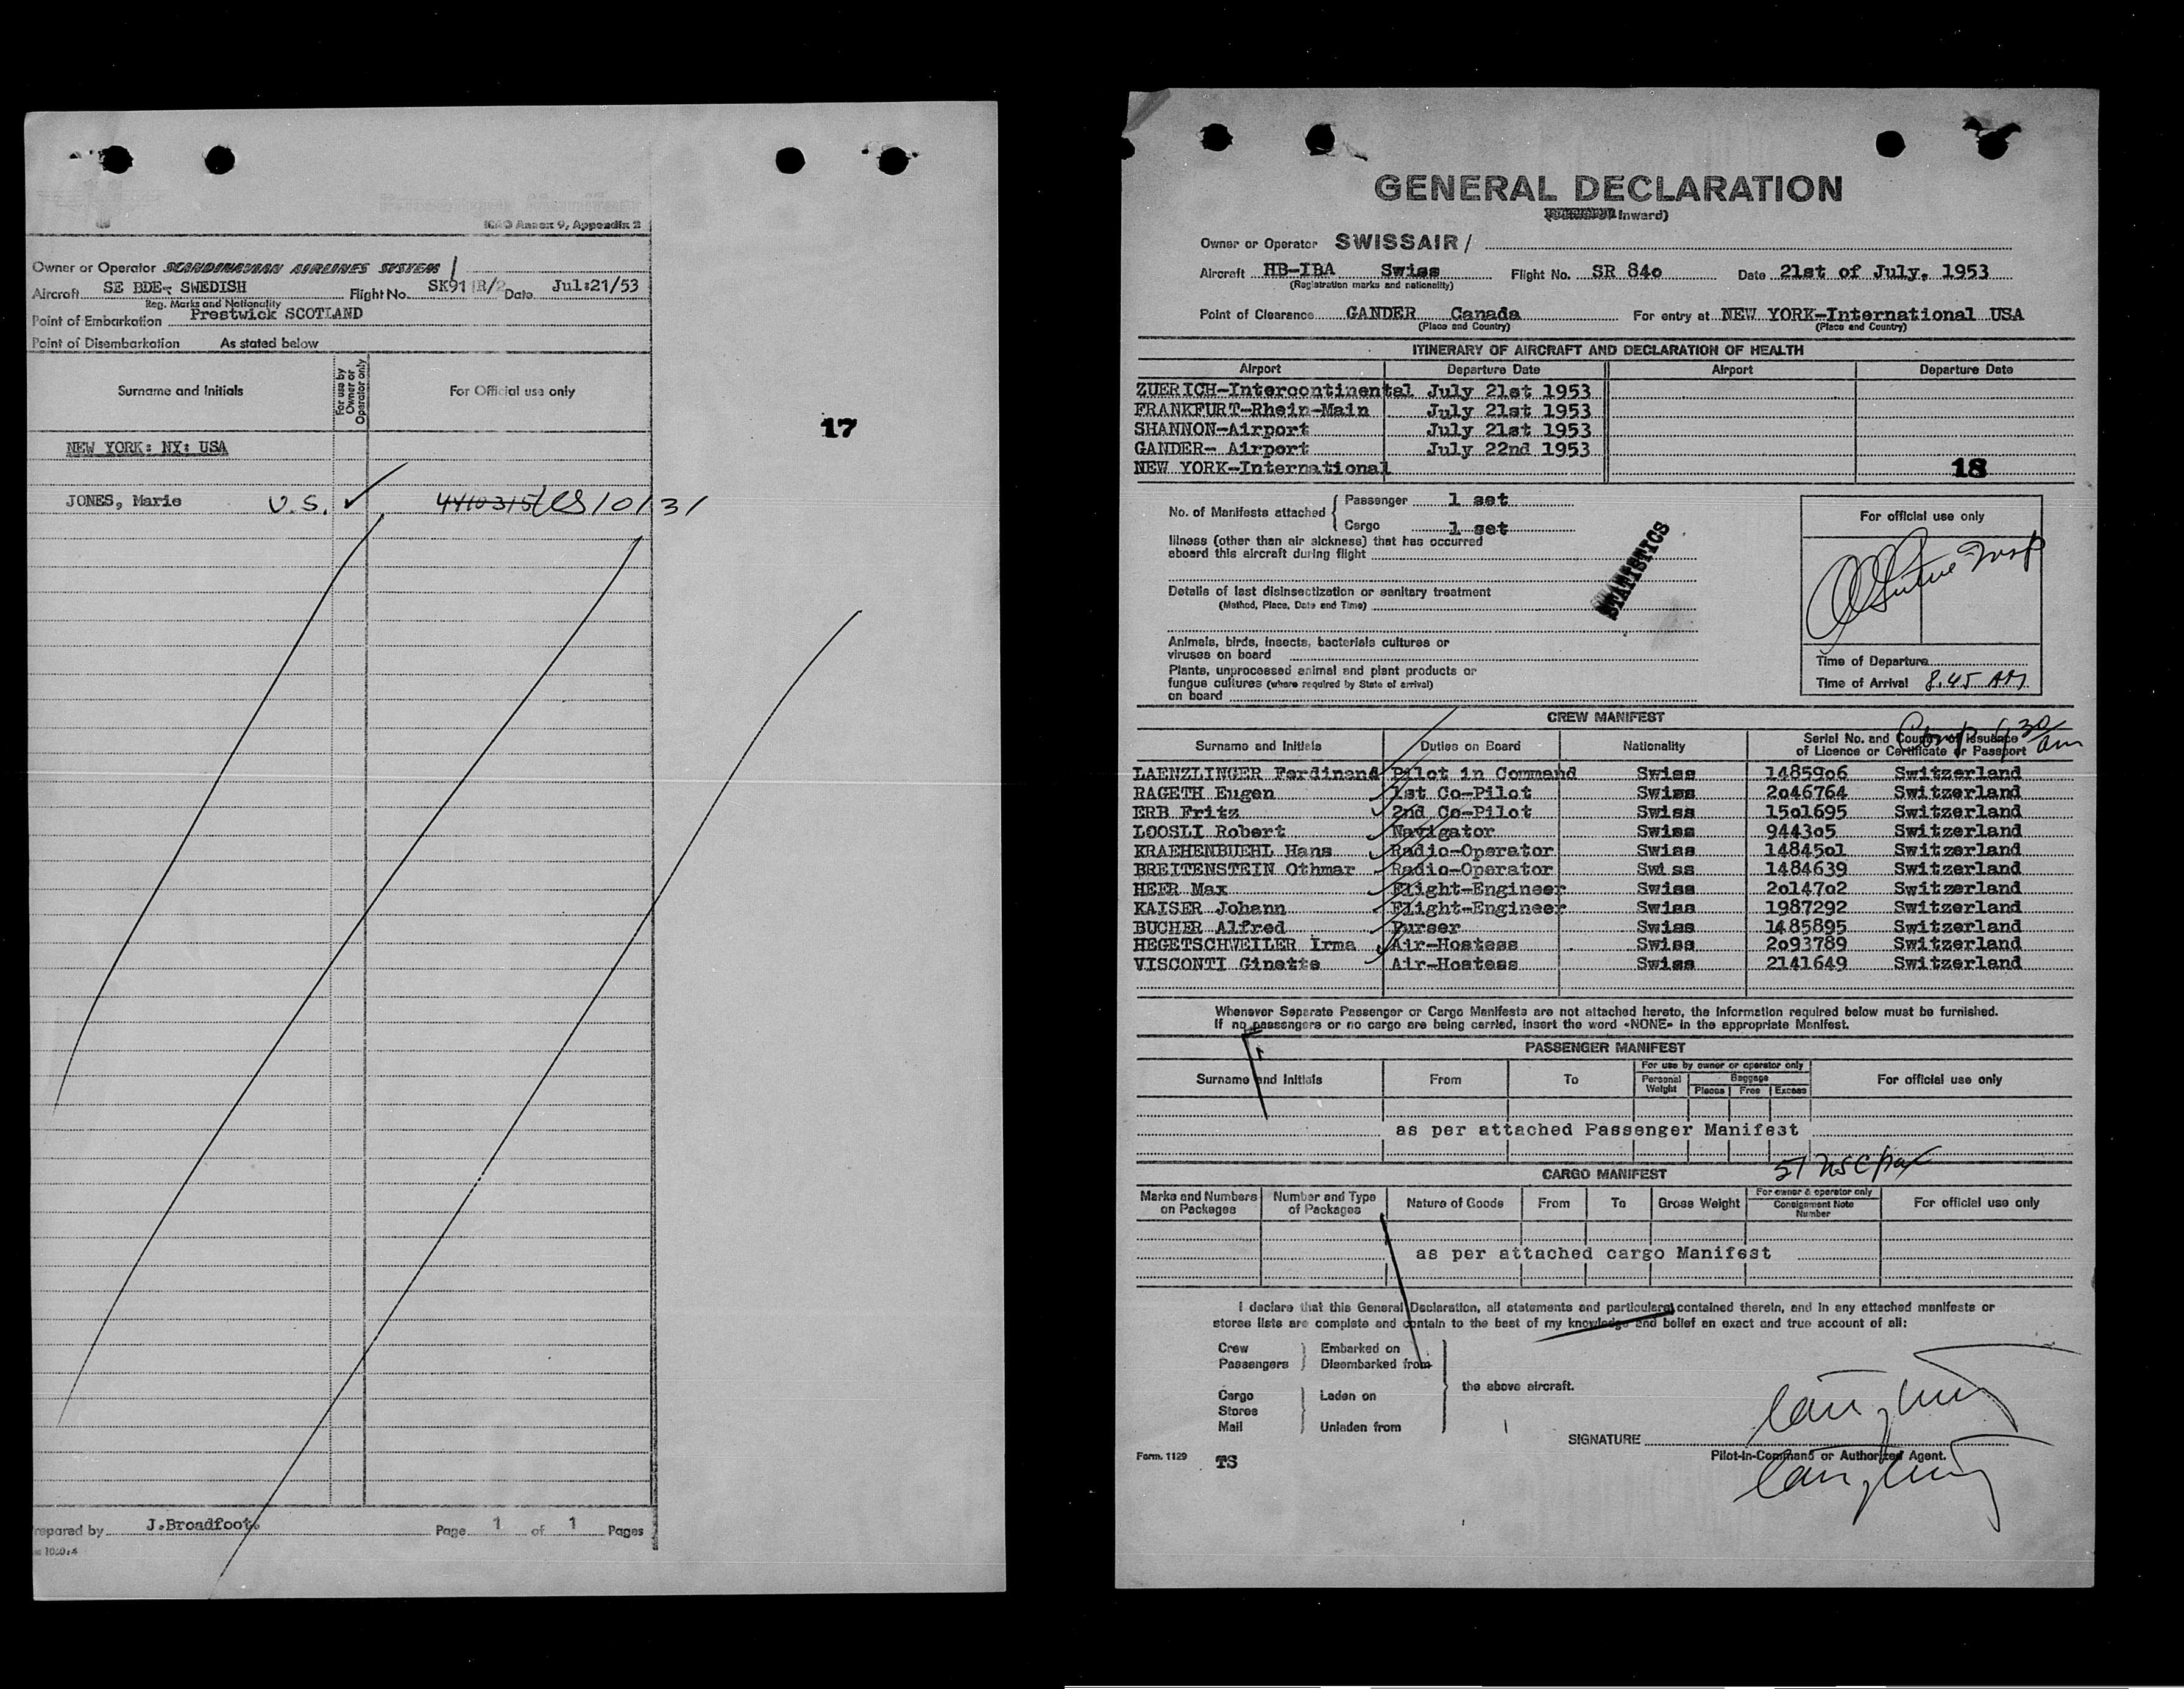 ICAO Annex 9, Appendix 2
Owner or Operator SCANDINAVIAN AIRLINES SYSTEM /
Aircraft SE BDE- SWEDISH Flight No. SK911R/2 Date Jul:21/53
Reg. Marks and Nationality
Point of Embarkation Prestwick SCOTLAND
Point of Disembarkation As stated below
Surname and Initials For use by Owner or Operator only For Official use only
17
NEW YORK: NY: USA
JONES, Marie U.S. ✓
Prepared by J.Broadfoot. Page 1 of 1 Pages
GENERAL DECLARATION
Inward)
Owner or Operator SWISSAIR /
Aircraft HB-IBA Swiss Flight No. SR 84o Date 21st of July, 1953
(Registration marks and nationality)
Point of Clearance GANDER Canada For entry at NEW YORK-International USA
(Place and Country) (Place and Country)
ITINERARY OF AIRCRAFT AND DECLARATION OF HEALTH
Airport Departure Date Airport Departure Date
ZUERICH-Intercontinental July 21st 1953
FRANKFURT-Rhein-Main July 21st 1953
SHANNON-Airport July 21st 1953
GANDER- Airport July 22nd 1953
NEW YORK-International 18
No. of Manifests attached { Passenger 1 set
Cargo 1 set
For official use only
Illness (other than air sickness) that has occurred
aboard this aircraft during flight
STATISTICS
Details of last disinsectization or sanitary treatment
(Method, Place, Date and Time)
Animals, birds, insects, bacterials cultures or
viruses on board
Plants, unprocessed animal and plant products or
fungus cultures (where required by State of arrival)
on board
Time of Departure
Time of Arrival 8.45 AM
CREW MANIFEST
Comp. 9 30/am
Surname and Initials Duties on Board Nationality Serial No. and Country of Issuance
of Licence or Certificate or Passport
LAENZLINGER Ferdinand Pilot in Command Swiss 14859o6 Switzerland
RAGETH Eugen 1st Co-Pilot Swiss 2o46764 Switzerland
ERB Fritz 2nd Co-Pilot Swiss 15o1695 Switzerland
LOOSLI Robert Navigator Swiss 9443o5 Switzerland
KRAEHENBUEHL Hans Radio-Operator Swiss 14845o1 Switzerland
BREITENSTEIN Othmar Radio-Operator Swi ss 1484639 Switzerland
HEER Max Flight-Engineer Swiss 2o147o2 Switzerland
KAISER Johann Flight-Engineer Swiss 1987292 Switzerland
BUCHER Alfred Purser Swiss 1485895 Switzerland
HEGETSCHWEILER Irma Air-Hostess Swiss 2o93789 Switzerland
VISCONTI Ginette Air-Hostess Swiss 2141649 Switzerland
Whenever Separate Passenger or Cargo Manifests are not attached hereto, the information required below must be furnished.
If no passengers or no cargo are being carried, insert the word «NONE» in the appropriate Manifest.
PASSENGER MANIFEST
Surname and Initials From To For use by owner or operator only For official use only
Personal Weight Baggage Pieces Free Excess
as per attached Passenger Manifest
CARGO MANIFEST
Marks and Numbers on Packages Number and Type of Packages Nature of Goods From To Gross Weight For owner & operator only Consignment Note Number For official use only
as per attached cargo Manifest
I declare that this General Declaration, all statements and particulars contained therein, and in any attached manifests or
stores lists are complete and contain to the best of my knowledge and belief an exact and true account of all:
Crew } Embarked on
Passengers } Disembarked from
the above aircraft.
Cargo } Laden on
Stores
Mail } Unladen from
SIGNATURE
Form. 1129 TS Pilot-in-Command or Authorized Agent.